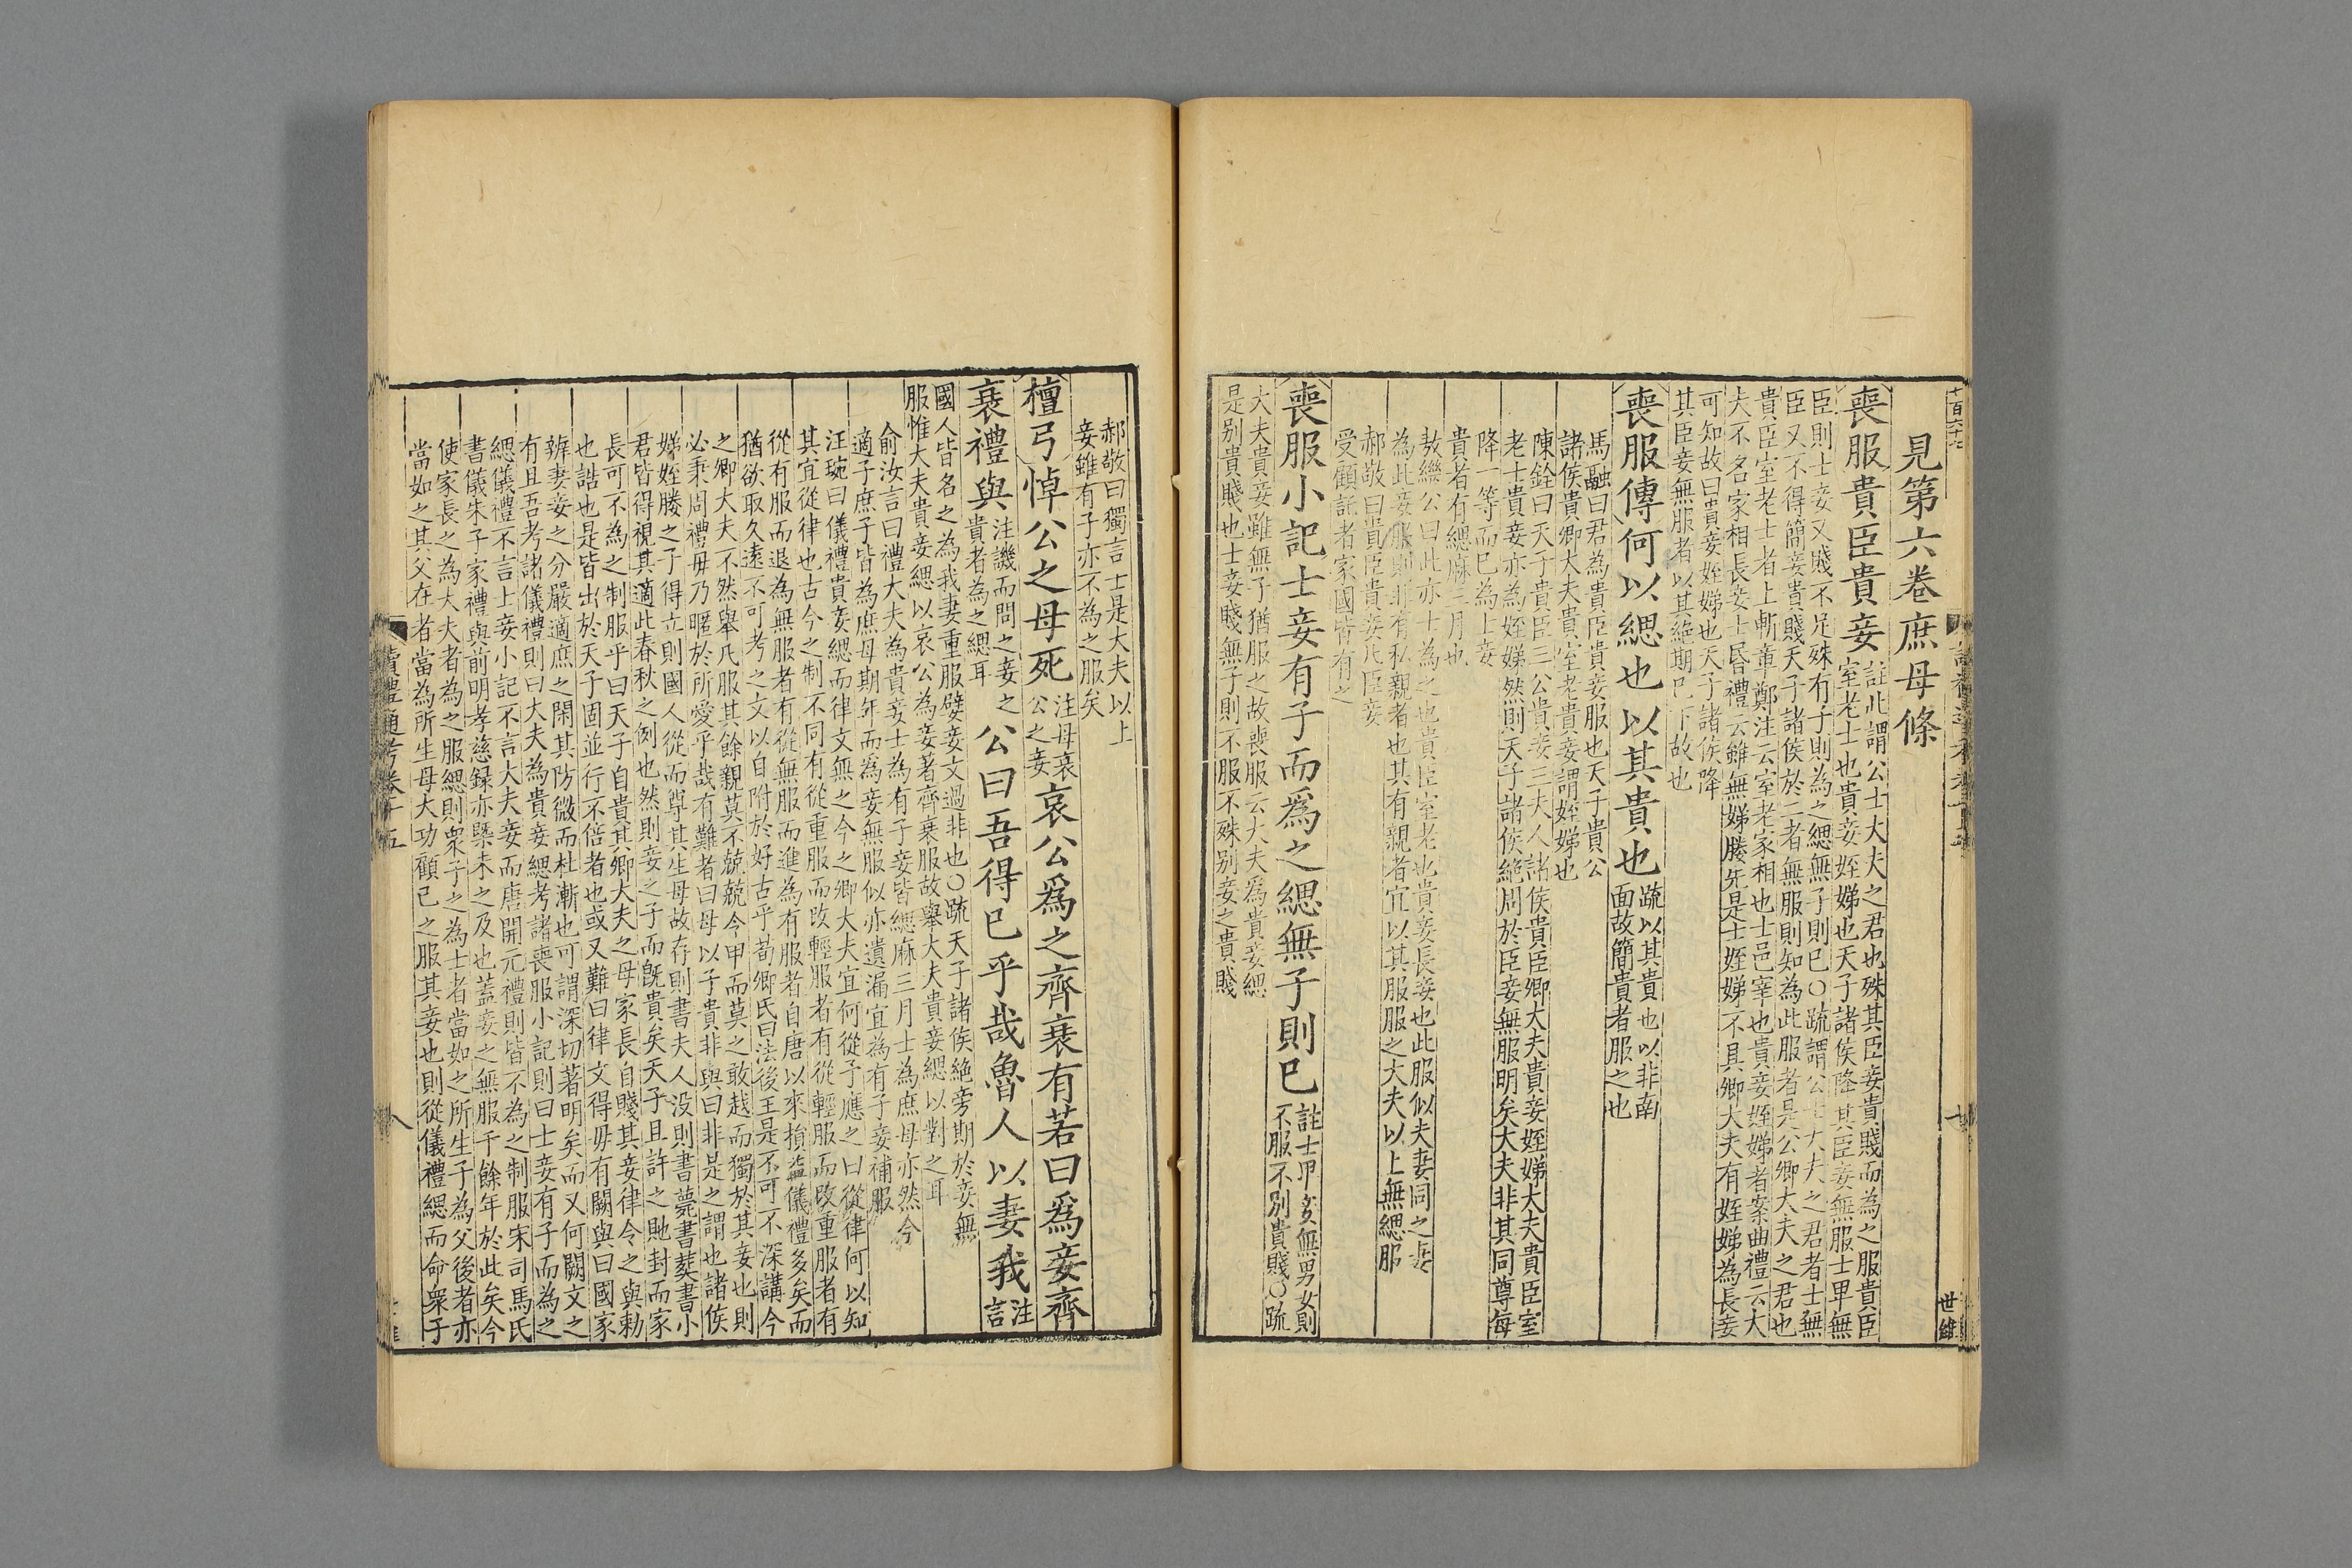 見第六卷庶母條
喪服貴臣貴妾
註此謂公士大夫之君也殊其臣妾貴賤而為之服貴臣
室老士也貴妾姪娣也天子諸侯降其臣妾無服士卑無
臣則士妾又賤不足殊有子則為之緦無子則已○疏謂公士大夫之君者士無
臣又不得簡妾貴賤天子諸侯於二者無服則知為此服者是公卿大夫之君也
貴臣室老士者上斬章鄭注云室老家相也士邑宰也貴妾姪娣者案曲禮云大
夫不名家相長妾士昏禮云雖無娣媵先是士姪娣不具卿大夫有姪娣為長妾
可知故曰貴妾姪娣也天子諸侯降
其臣妾無服者以其絶期已下故也
喪服傳何以緦也以其貴也
疏以其貴也以非南
面故簡貴者服之也
馬融曰君為貴臣貴妾服也天子貴公
諸侯貴卿大夫貴室老貴妾謂姪娣也
陳銓曰天子貴臣三公貴妾三夫人諸侯貴臣卿大夫貴妾姪娣大夫貴臣室
老士貴妾亦為姪娣然則天子諸侯絶周於臣妾無服明矣大夫非其同尊每
降一等而已為上妾
貴者有緦麻三月也
敖繼公曰此亦士為之也貴臣室老也貴妾長妾也此服似夫妻同之妻
為此妾服則非有私親者也其有親者宜以其服服之大夫以上無緦服
郝敬曰貴臣貴妾凡臣妾
受顧託者家國皆有之
喪服小記士妾有子而爲之緦無子則已
註士卑妾無男女則
不服不別貴賤○疏
大夫貴妾雖無子猶服之故喪服云大夫爲貴妾緦
是別貴賤也士妾賤無子則不服不殊別妾之貴賤
郝敬曰獨言士是大夫以上
妾雖有子亦不為之服矣
檀弓悼公之母死
注母哀
公之妾
哀公爲之齊衰有若曰爲妾齊
衰禮與
注譏而問之妾之
貴者為之緦耳
公曰吾得已乎哉魯人以妻我
注
言
國人皆名之為我妻重服嬖妾文過非也○疏天子諸侯絶旁期於妾無
服惟大夫貴妾緦以哀公為妾著齊衰服故舉大夫貴妾緦以對之耳
俞汝言曰禮大夫為貴妾士為有子妾皆緦麻三月士為庶母亦然今
適子庶子皆為庶母期年而為妾無服似亦遺漏宜為有子妾補服
汪琬曰儀禮貴妾緦而律文無之今之卿大夫宜何從予應之曰從律何以知
其宜從律也古今之制不同有從重服而改輕服者有從輕服而改重服者有
從有服而退為無服者有從無服而進為有服者自唐以來損益儀禮多矣而
猶欲取久遠不可考之文以自附於好古乎荀卿氏曰法後王是不可不深講今
之卿大夫不然舉凡服其餘親莫不兢兢今甲而莫之敢越而獨於其妾也則
必秉周禮毋乃暱於所愛乎哉有難者曰母以子貴非與曰非是之謂也諸侯
娣姪媵之子得立則國人從而尊其生母故存則書夫人没則書薨書葬書小
君皆得視其適此春秋之例也然則妾之子而旣貴矣天子且許之貤封而家
長可不為之制服乎曰天子自貴其卿大夫之母家長自賤其妾律令之與勅
也誥也是皆出於天子固並行不倍者也或又難曰律文得毋有闕與曰國家
辨妻妾之分嚴適庶之閑其防微而杜漸也可謂深切著明矣而又何闕文之
有且吾考諸儀禮則曰大夫為貴妾緦考諸喪服小記則曰士妾有子而為之
緦儀禮不言士妾小記不言大夫妾而唐開元禮則皆不為之制服宋司馬氏
書儀朱子家禮與前明孝慈録亦槩未之及也蓋妾之無服千餘年於此矣今
使家長之為大夫者為之服緦則衆子之為士者當如之所生子為父後者亦
當如之其父在者當為所生母大功顧已之服其妾也則從儀禮緦而命衆子
讀禮通考卷十五
八